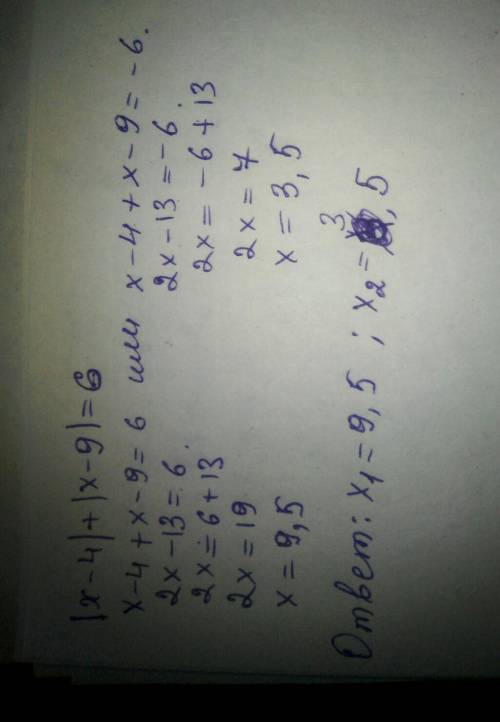 |x-4|+|x-9|=6
x-4+x-9=6 или x-4+x-9=-6.
2x-13=6. 2x-13=-6.
2x=6+13 2x=-6+13
2x=19 2x=7
x=9,5 x=3,5
Ответ: x₁=9,5 ; x₂=3,5